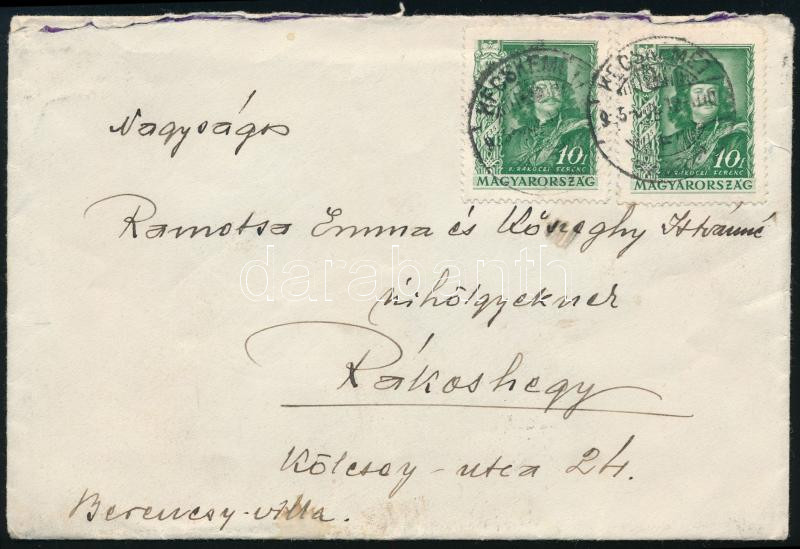 KECSKEMÉT
KECSKEMÉT
10f
10f
II. RÁKÓCZI FERENC
II. RÁKÓCZI FERENC
MAGYARORSZÁG
MAGYARORSZÁG
Nagyságos
Ramotsa Emma és Kőszeghy Istvánné
darabanth
úrihölgyeknek
Rákoshegy
Kölcsey-utca 24.
Berencsy-villa.